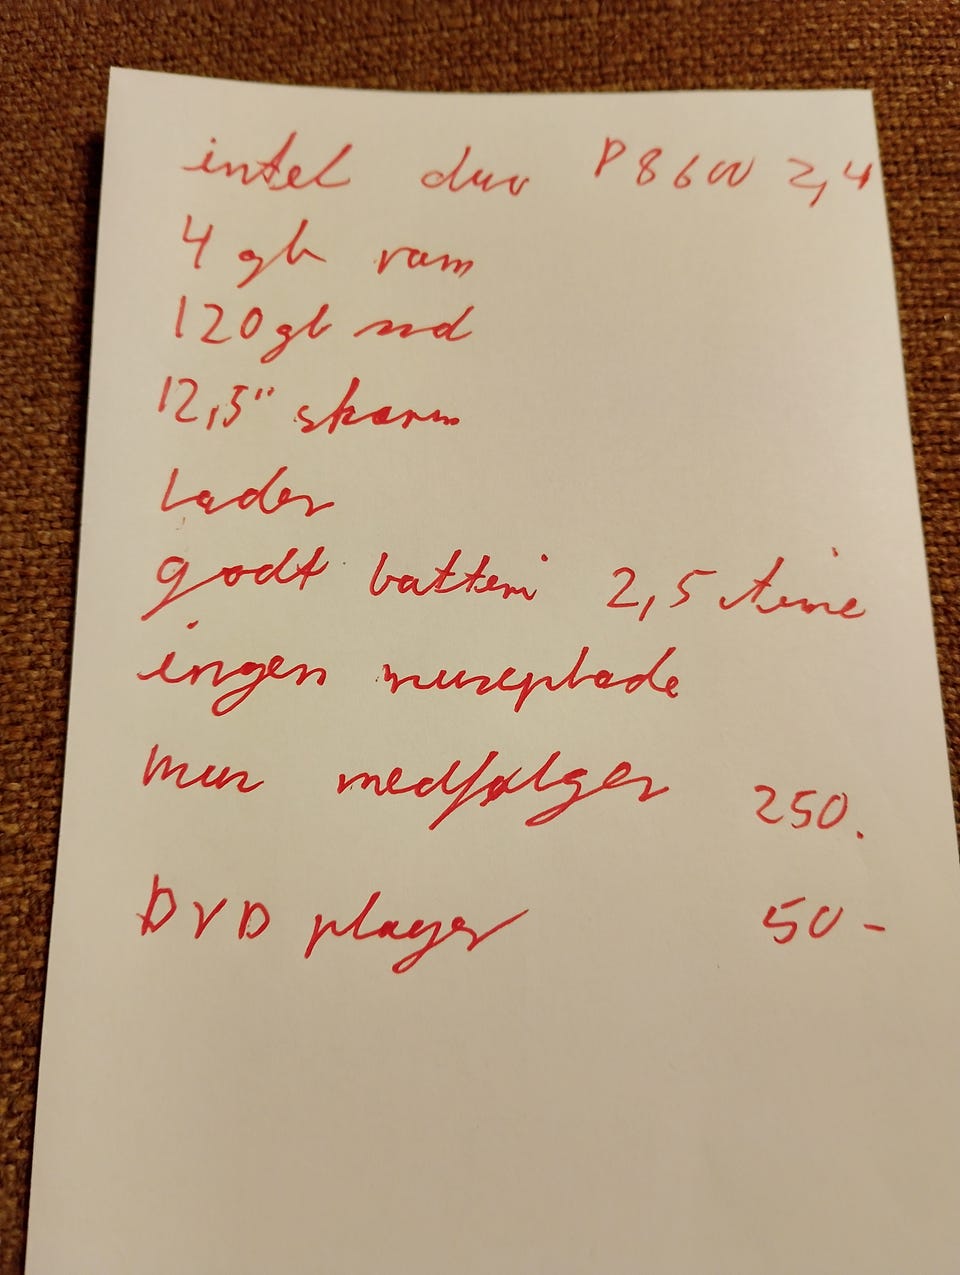 intel duo P8600 2,4
4 gb ram
120gb ssd
12,5" skærm
Lader
godt batteri 2,5 time
ingen museplade
mus medfølger 250.
DVD player 50-